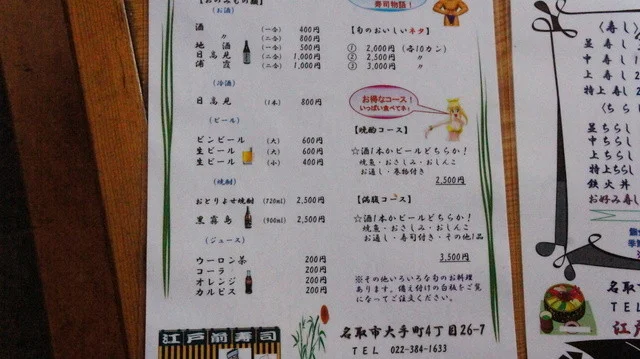 【おのみもの類】
（お酒）
酒 （一合） 400円
〃 （二合） 800円
地酒 （一合） 500円
日高見 （二合） 1,000円
浦霞 （二合） 1,000円
（冷酒）
日高見 （1本） 800円
（ビール）
ビンビール （大） 600円
生ビール （大） 600円
生ビール （小） 400円
（焼酎）
おとりよせ焼酎 （720ml） 2,500円
黒霧島 （900ml） 2,500円
（ジュース）
ウーロン茶 200円
コーラ 200円
オレンジ 200円
カルピス 200円
江戸前寿司
寿司物語！
【旬のおいしいネタ】
① 2,000円（各10カン）
② 2,500円 〃
③ 3,000円 〃
お得なコース！
いっぱい食べてネ♪
【晩酌コース】
☆酒1本かビールどちらか！
焼魚・おさしみ・おしんこ
お通し・巻物付き
2,500円
【満腹コース】
☆酒1本かビールどちらか！
焼魚・おさしみ・おしんこ
お通し・寿司付き・その他1品
3,500円
※その他いろいろな旬のお料理
あります。備え付けの白板をご覧
になってご注文ください。
名取市大手町4丁目26-7
TEL 022-384-1633
〈寿し〉
並寿し
中寿し
上寿し
特上寿し
〈ちらし
並ちらし
中ちらし
上ちらし
特上ちらし
鉄火丼
お好み寿し
名取市
TEL